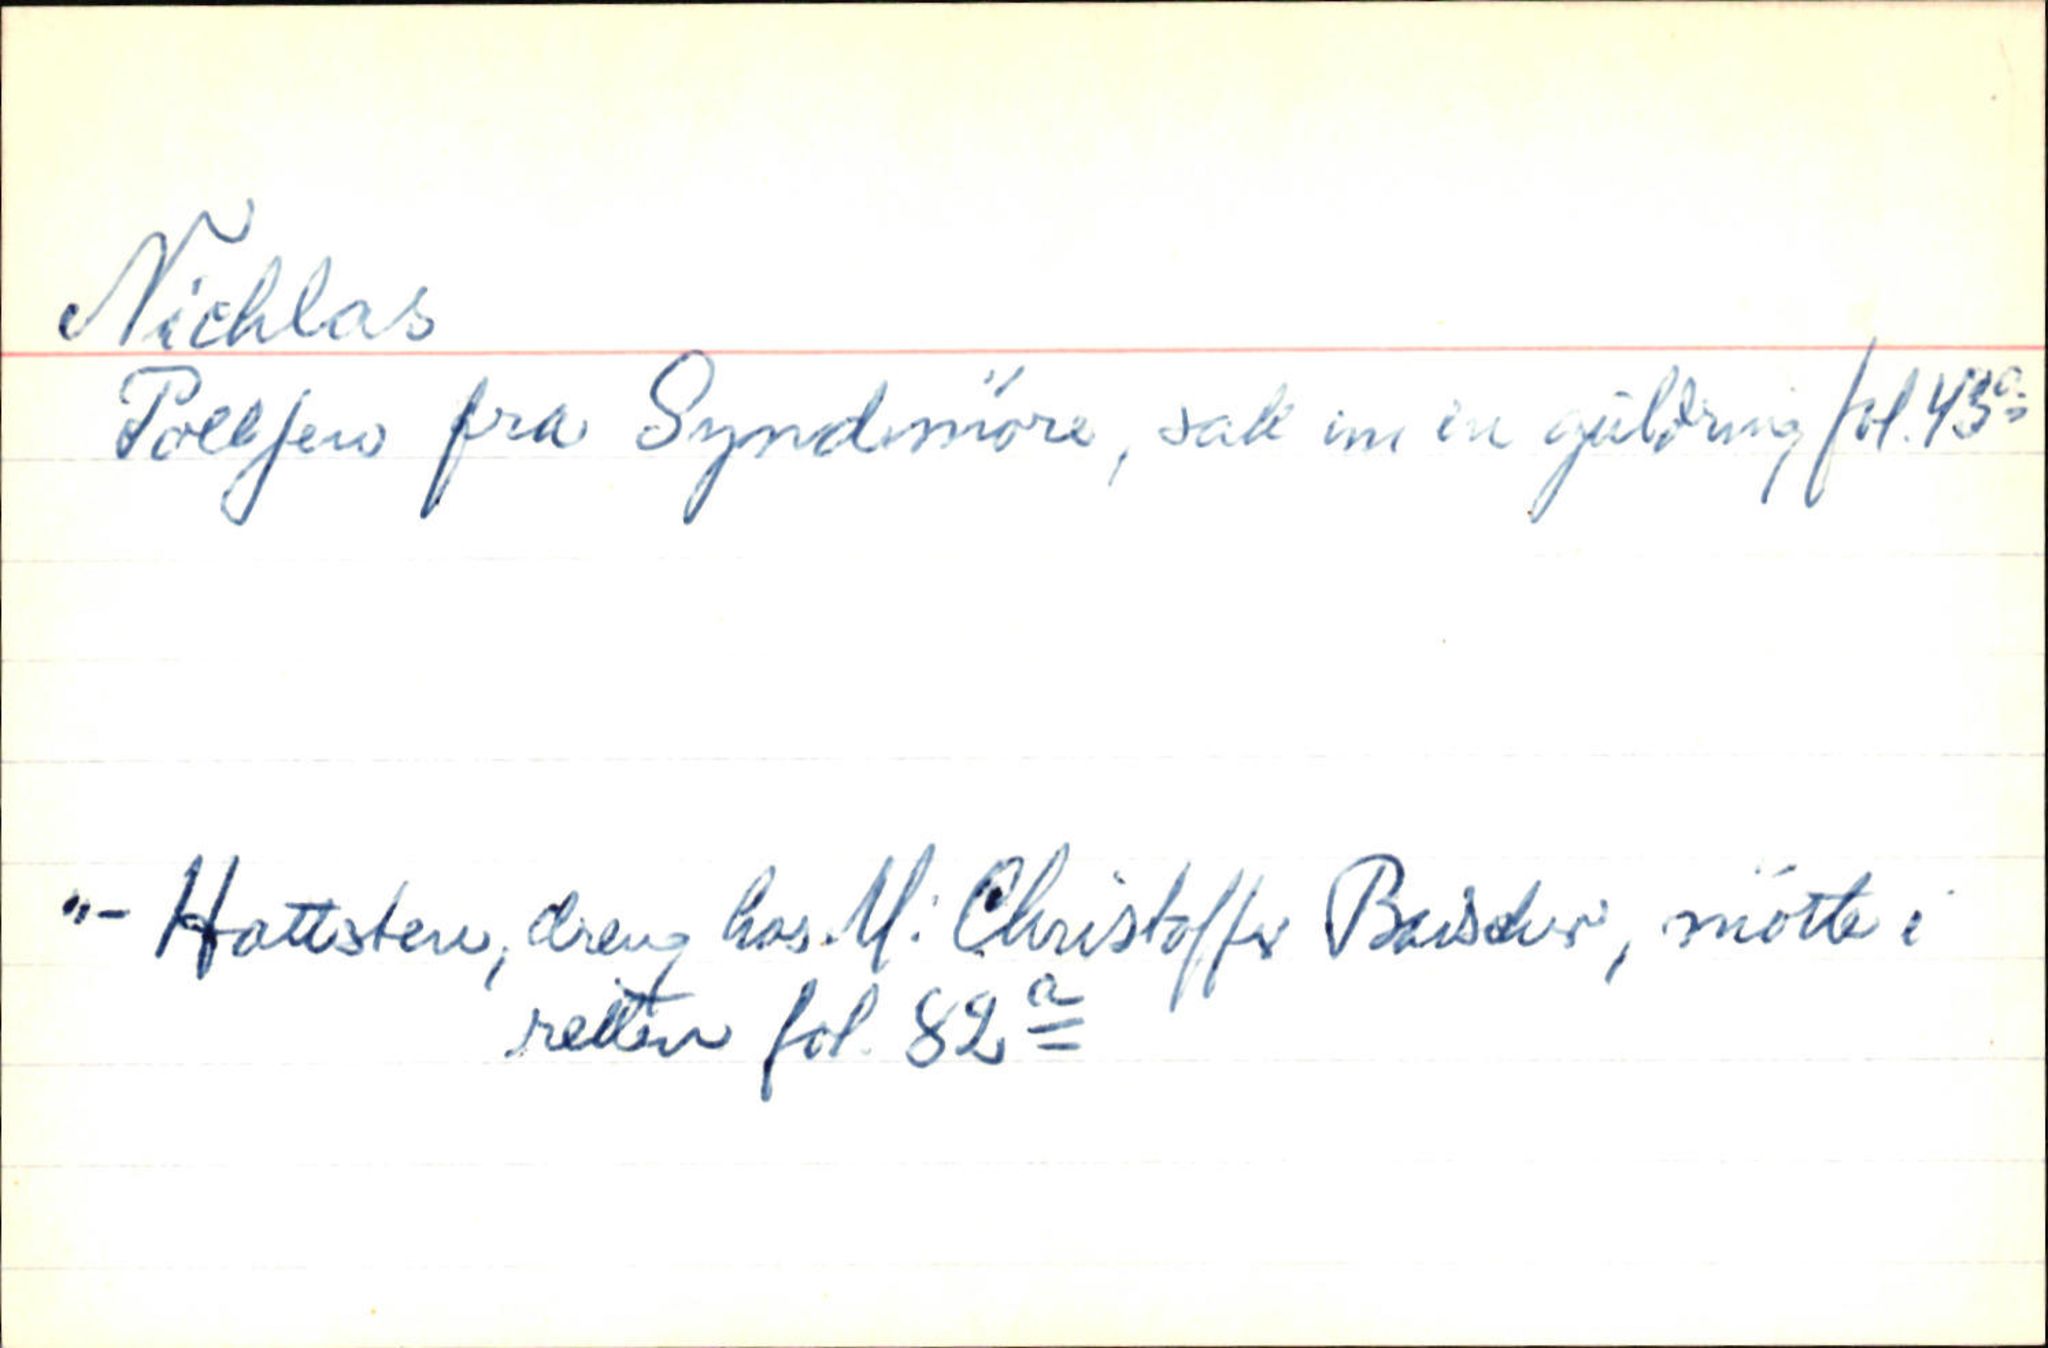 Nichlas
Pollsen fra Syndmöre, sak um en guldring fol. 43a
"- Hattsten, dreng hos M: Christoffer, mötte i
retten fol. 82a